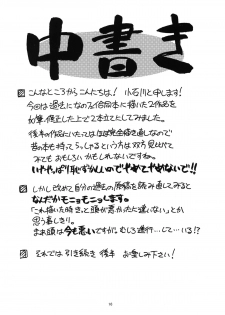 中書き
こんなところからこんにちは! 小石川と申します!
今回は過去になのは合同本に描いた2作品を
如筆、修正した上で2本立としてみました。
後半の作品にいたってはほぼ完全描き直しなので
昔の本も持ってらっしゃるという方は双方見せて
みてもおもしろいかもしれないですね。
いややっぱり恥ずかしいのでやめてやめないで!!
しかし改めて自分の過去の原稿を読み直してみると
なんだかモニョモニョします。
「これ描いた時きっと頭が悪かったに違いない」とか
思う楽しさ。
まあ頭は今も悪いですが。むしろ進行…して…いる!?
それでは引き続き後半お楽しみ下さい!